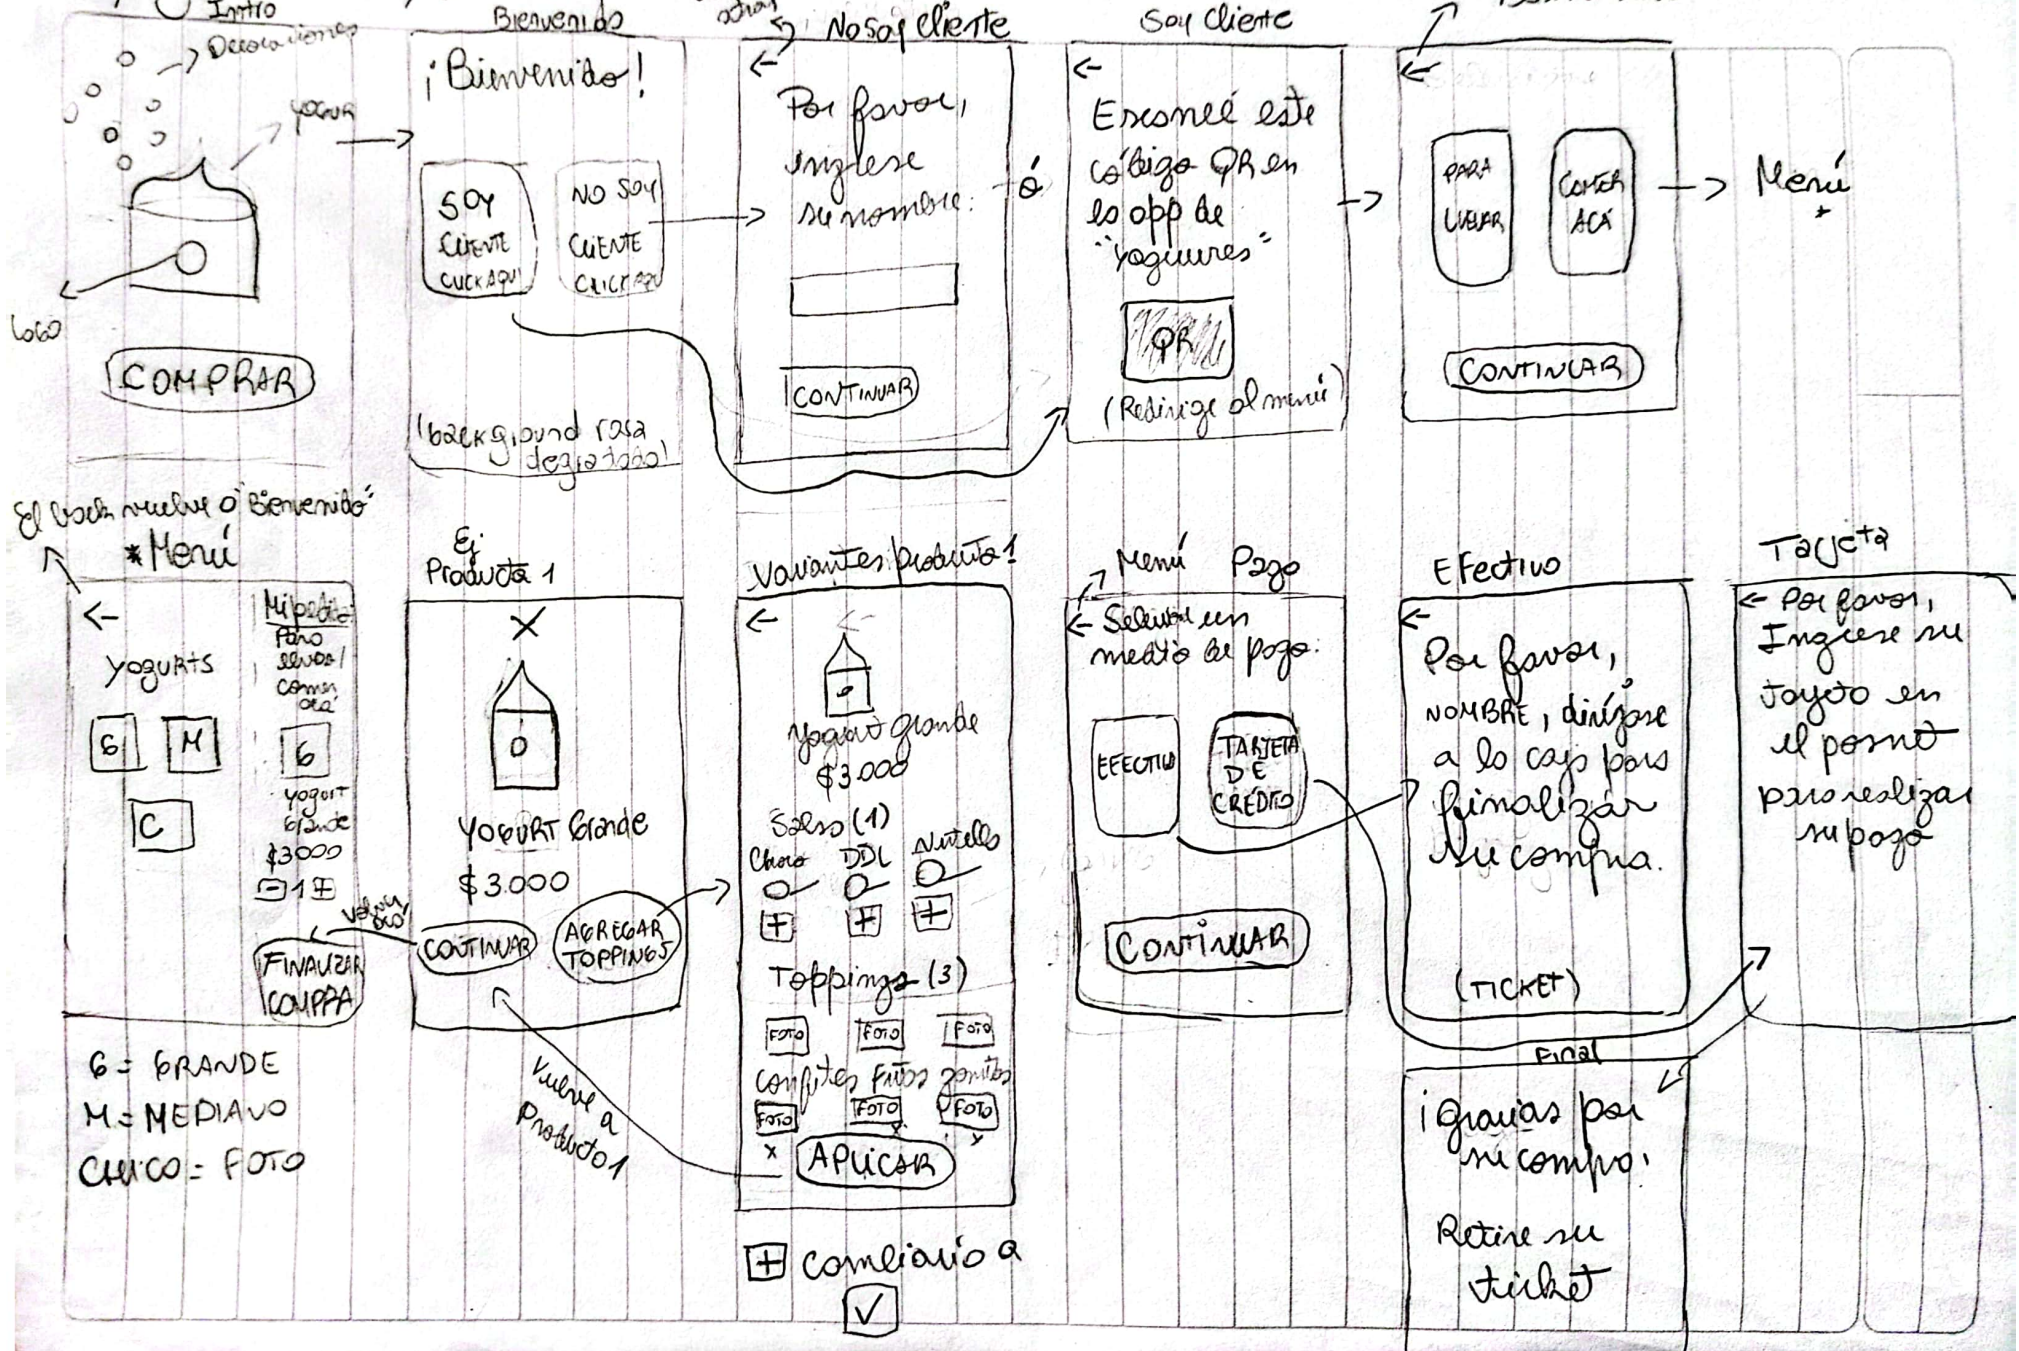 Intro
Decoraciones
yogur
Logo
COMPRAR
Bienvenido
¡Bienvenido!
SOY
CLIENTE
CLICK AQUI
NO SOY
CLIENTE
CLICK AQUI
(background rosa
degradado)
atras
No Soy Cliente
Por favor,
ingrese
su nombre:
CONTINUAR
ó
Soy Cliente
Escaneé este
código QR en
la app de
"Yoguures"
QR
(Redirige al menú)
PARA
LLEVAR
COMER
ACÁ
CONTINUAR
Menú
*
El back vuelve a "Bienvenido"
* Menú
YOGURTS
G
M
C
Mi pedido:
Para
llevar/
comer
acá
G
yogurt
Grande
$3000
- 1 +
FINALIZAR
COMPRA
G = GRANDE
M = MEDIANO
CHICO = FOTO
Ej:
Producto 1
X
YOGURT Grande
$3.000
CONTINUAR
AGREGAR
TOPPINGS
Vuelve a
Producto 1
Variantes producto 1
Yogurt grande
$3.000
Salsa (1)
Choco DDL Nutella
+ + +
Toppings (3)
FOTO FOTO FOTO
confites Frutas gomitas
FOTO FOTO FOTO
x x x
APLICAR
+ cambiario a
✓
Menú
Pago
Seleccione un
medio de pago:
EFECTIVO
TARJETA
DE
CRÉDITO
CONTINUAR
Efectivo
Por favor,
NOMBRE, diríjase
a la caja para
finalizar
su compra.
(TICKET)
Tarjeta
Por favor,
Ingrese su
tarjeta en
el posnet
para realizar
su pago
Final
¡Gracias por
su compra!
Retire su
ticket